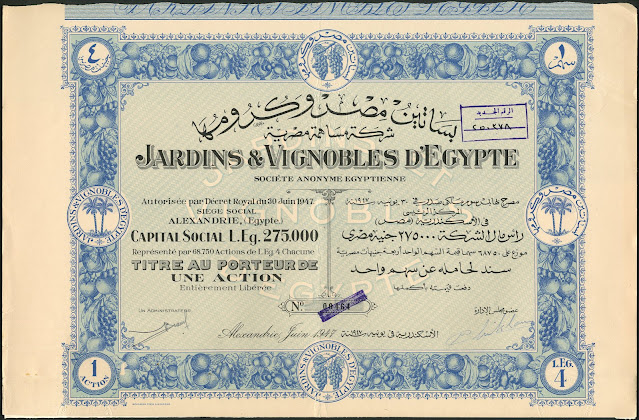 ٤
١
سهم
بساتين مصر وكرومها
شركة مساهمة مصرية
الرقم الجديد
٢٥٠٢٧٨
JARDINS & VIGNOBLES D'EGYPTE
SOCIÉTÉ ANONYME EGYPTIENNE
Autorisée par Décret Royal du 30 Juin 1947
SIÈGE SOCIAL
ALEXANDRIE, (Egypte)
CAPITAL SOCIAL L.Eg. 275.000
Représenté par 68.750 Actions de L.Eg 4 Chacune
TITRE AU PORTEUR DE
UNE ACTION
Entièrement Libérée
المركز الرئيسى
فى الإسكندرية (مصر)
رأس مال الشركة ٢٧٥٠٠٠ جنية مصرى
موزع على ٦٨٧٥٠ سهما قيمة السهم الواحد أربعة جنيهات مصرية
سند لحامله عن سهم واحد
دفعت قيمته بأكملها
No.
UN ADMINISTRATEUR,
عضو مجلس الإدارة
Alexandrie, Juin 1947
الاسكندرية فى يونيه ١٩٤٧
JARDINS & VIGNOBLES D'EGYPTE
JARDINS & VIGNOBLES D'EGYPTE
1
ACTION
L.EG.
4